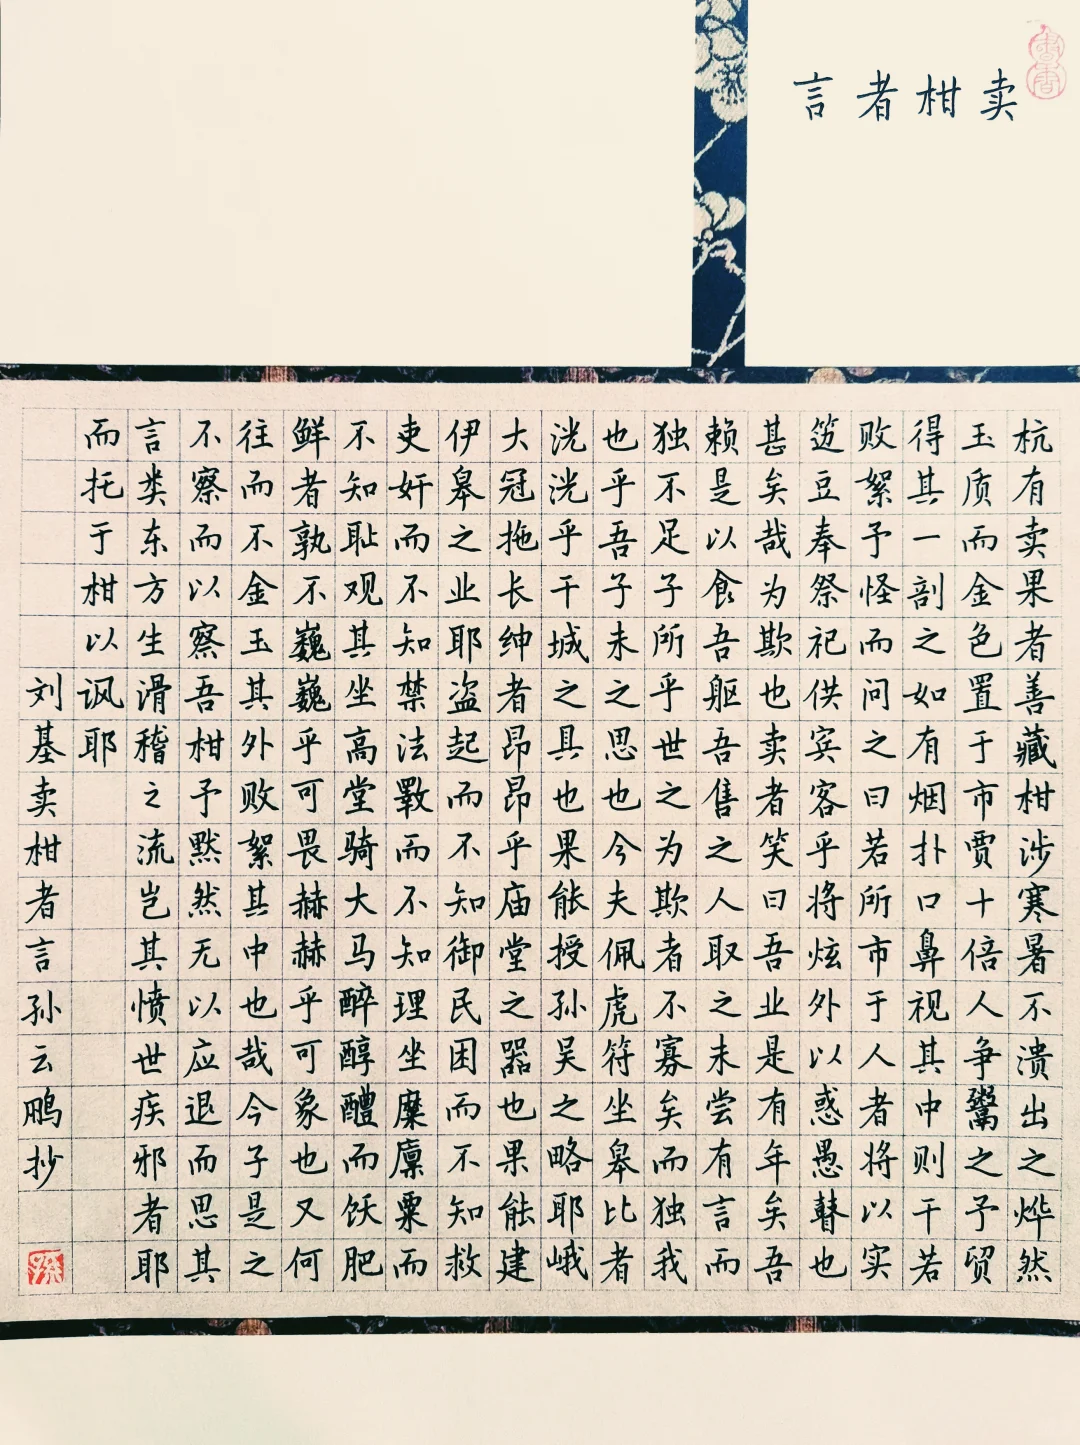 書香
卖柑者言
杭有卖果者善藏柑涉寒暑不溃出之烨然
玉质而金色置于市贾十倍人争鬻之予贸
得其一剖之如有烟扑口鼻视其中则干若
败絮予怪而问之曰若所市于人者将以实
笾豆奉祭祀供宾客乎将炫外以惑愚瞽也
甚矣哉为欺也卖者笑曰吾业是有年矣吾
赖是以食吾躯吾售之人取之未尝有言而
独不足子所乎世之为欺者不寡矣而独我
也乎吾子未之思也今夫佩虎符坐皋比者
洸洸乎干城之具也果能授孙吴之略耶峨
大冠拖长绅者昂昂乎庙堂之器也果能建
伊皋之业耶盗起而不知御民困而不知救
吏奸而不知禁法斁而不知理坐糜廪粟而
不知耻观其坐高堂骑大马醉醇醴而饫肥
鲜者孰不巍巍乎可畏赫赫乎可象也又何
往而不金玉其外败絮其中也哉今子是之
不察而以察吾柑予默然无以应退而思其
言类东方生滑稽之流岂其愤世疾邪者耶
而托于柑以讽耶
刘基卖柑者言孙云鹏抄